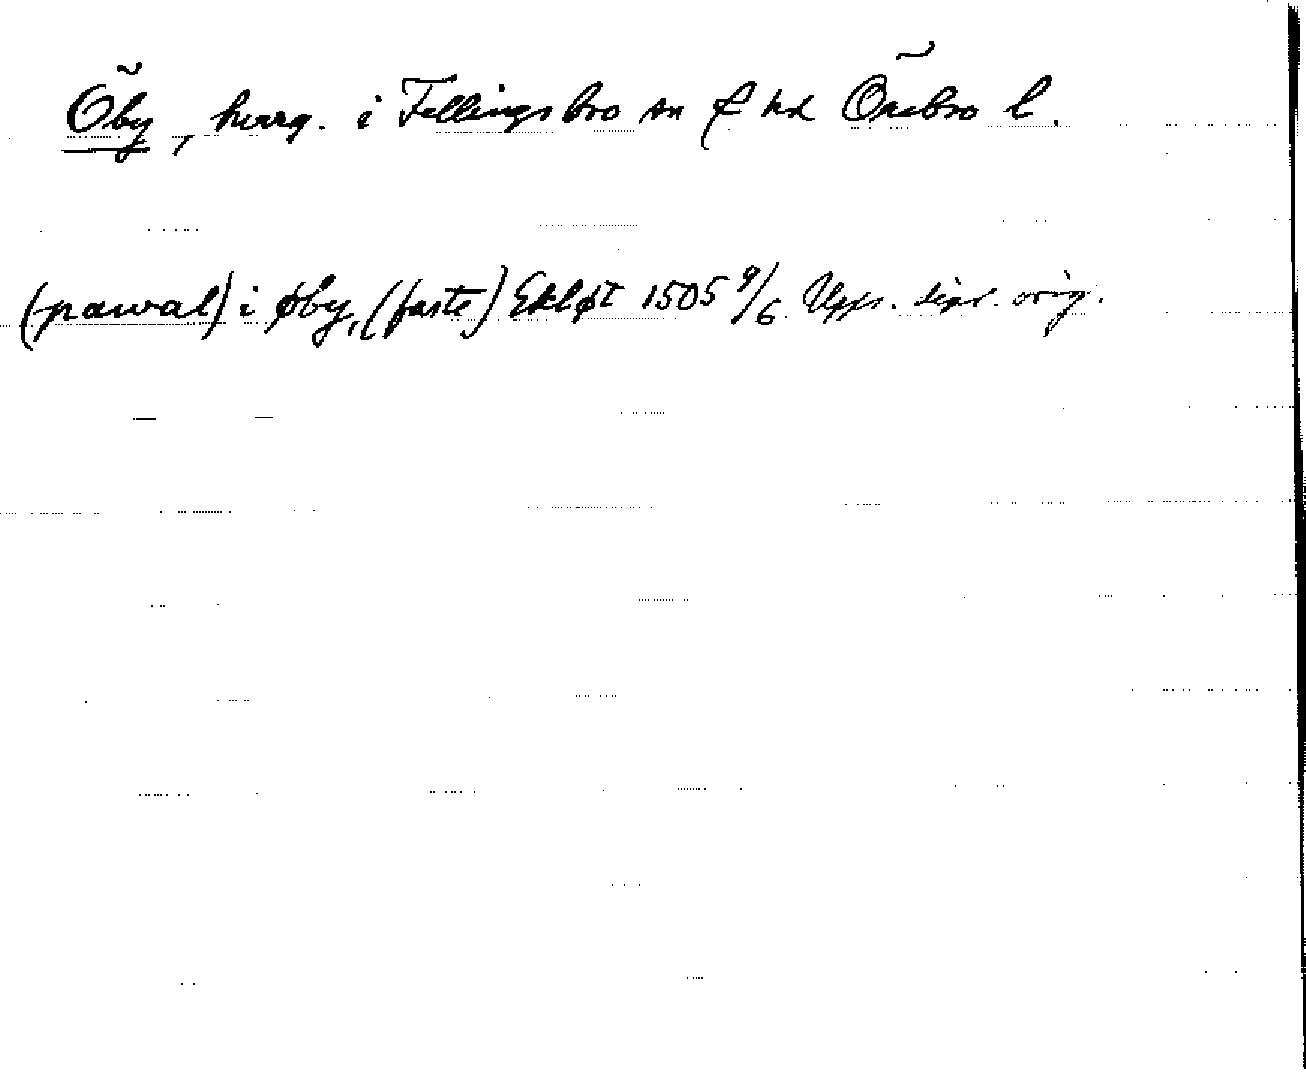 Öby, herrg. i Fellingsbro sn f hd Örebro l.
(pawal) i øby, (faste) Ekløt 1505 9/6 Upps. dipl. orig.